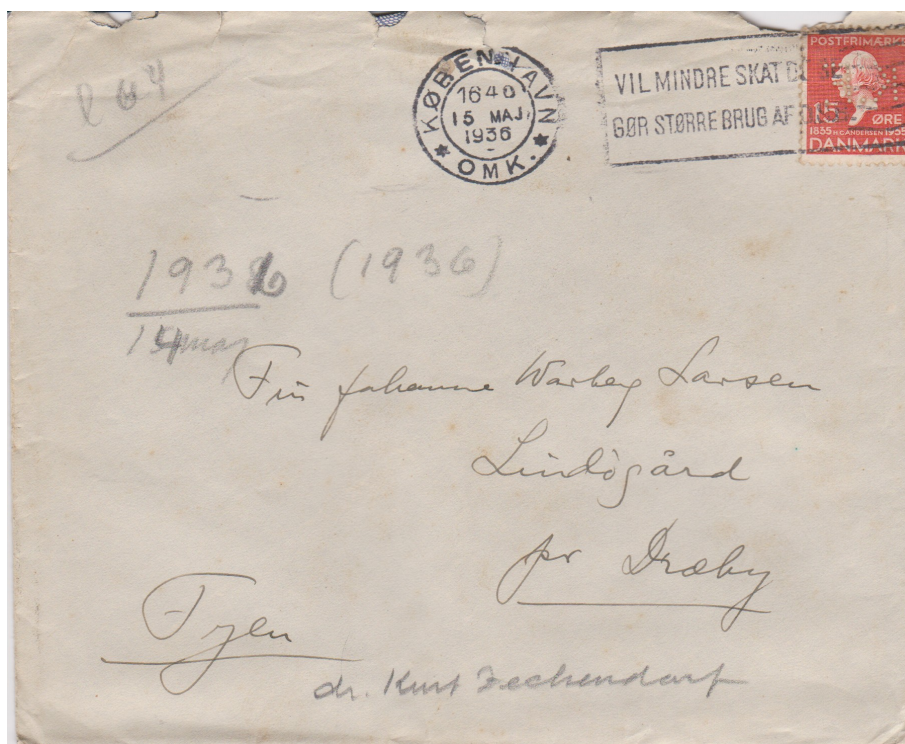 KØBENHAVN
1640
15 MAJ
1936
OMK.
VIL MINDRE SKAT
GØR STØRRE BRUG AF
POSTFRIMÆRKE
15 ØRE
1835 H.C. ANDERSEN 1935
DANMARK
1936 (1936)
14 maj
Fru Johanne Warberg Larsen
Lindøgård
pr Dræby
Fyen
dr. Kurt Zechendorf